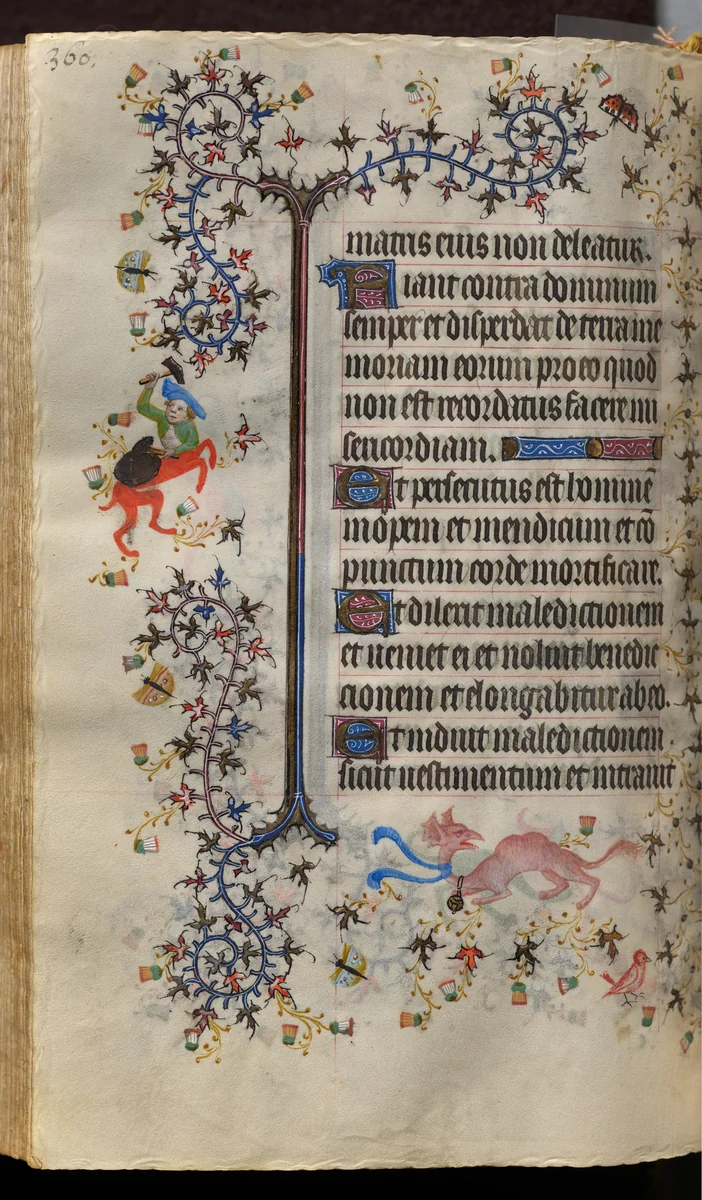 360.
matris eius non deleatur.
Fiant contra dominum
semper et disperdat de terra me
moriam eorum pro eo quod
non est recordatus facere mi
sericordiam.
Et persecutus est hominē
inopem et mendicum et cō
punctum corde mortificare.
Et dilexit maledictionem
et veniet ei et noluit benedic
cionem et elongabitur ab eo.
Et induit maledictionem
sicut vestimentum et intravit